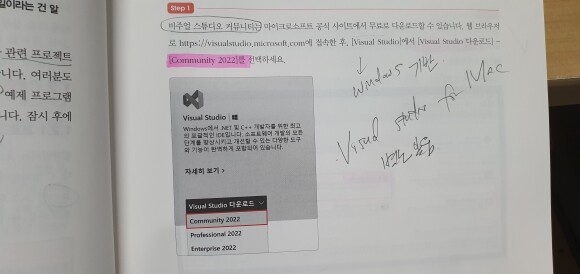 일이라는 건 알
관련 프로젝트
니다. 여러분도
예제 프로그램
니다. 잠시 후에
Step 1
비주얼 스튜디오 커뮤니티는 마이크로소프트 공식 사이트에서 무료로 다운로드할 수 있습니다. 웹 브라우저
로 https://visualstudio.microsoft.com에 접속한 후, [Visual Studio]에서 [Visual Studio 다운로드] –
[Community 2022]를 선택하세요.
↓
Windows 기반
Visual Studio for Mac
Visual Studio
Windows에서 .NET 및 C++ 개발자를 위한 최고
의 포괄적인 IDE입니다. 소프트웨어 개발의 모든
단계를 향상시키고 개선할 수 있는 다양한 도구
와 기능이 완벽하게 포함되어 있습니다.
자세히 보기 >
Visual Studio 다운로드
Community 2022
Professional 2022
Enterprise 2022